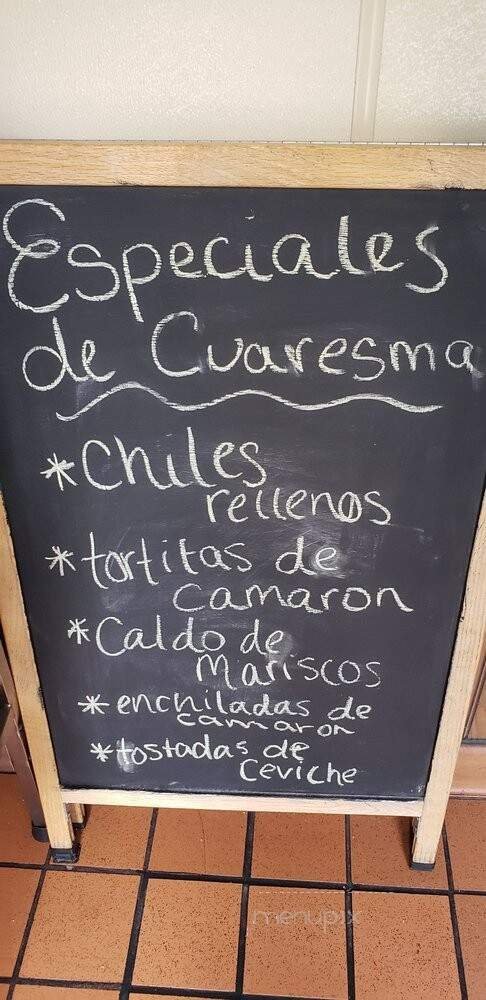 Especiales
de Cuaresma
*Chiles
rellenos
*tortitas de
camaron
*Caldo de
Mariscos
*enchiladas de
camaron
*tostadas de
ceviche
menupix